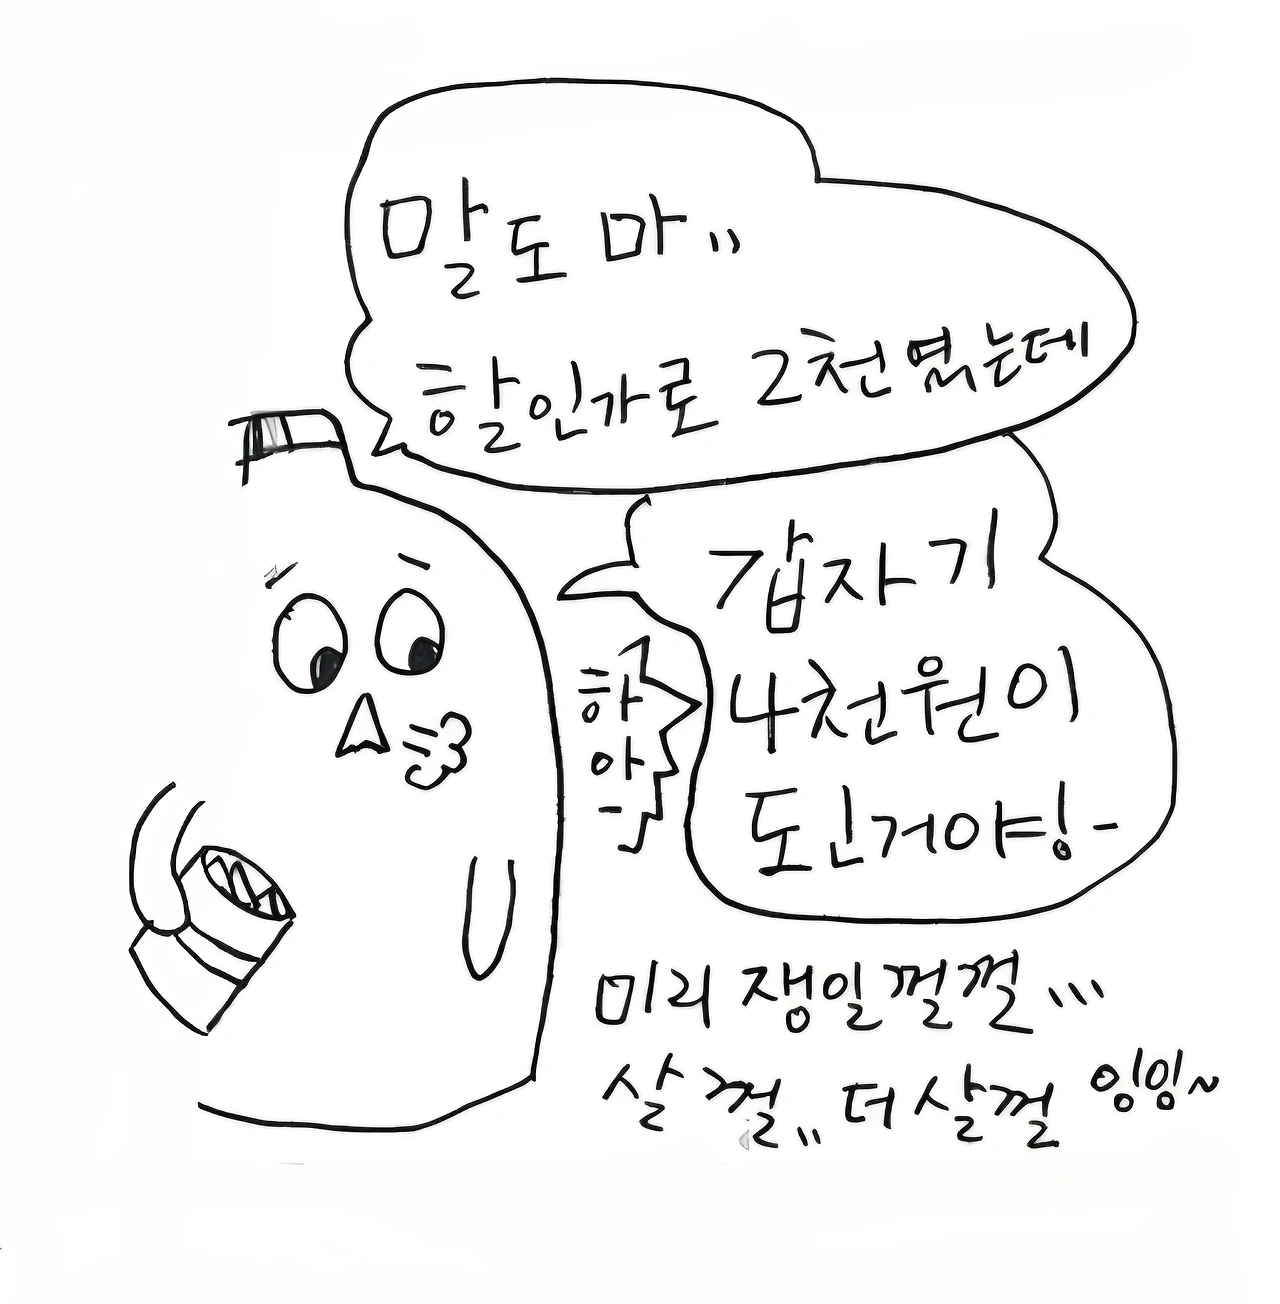 말도 마,,
할인가로 2천였는데
갑자기
4천원이
도닌거야잉-
하
아
-
미리 쟁일껄껄...
살껄,, 더살껄 잉잉~